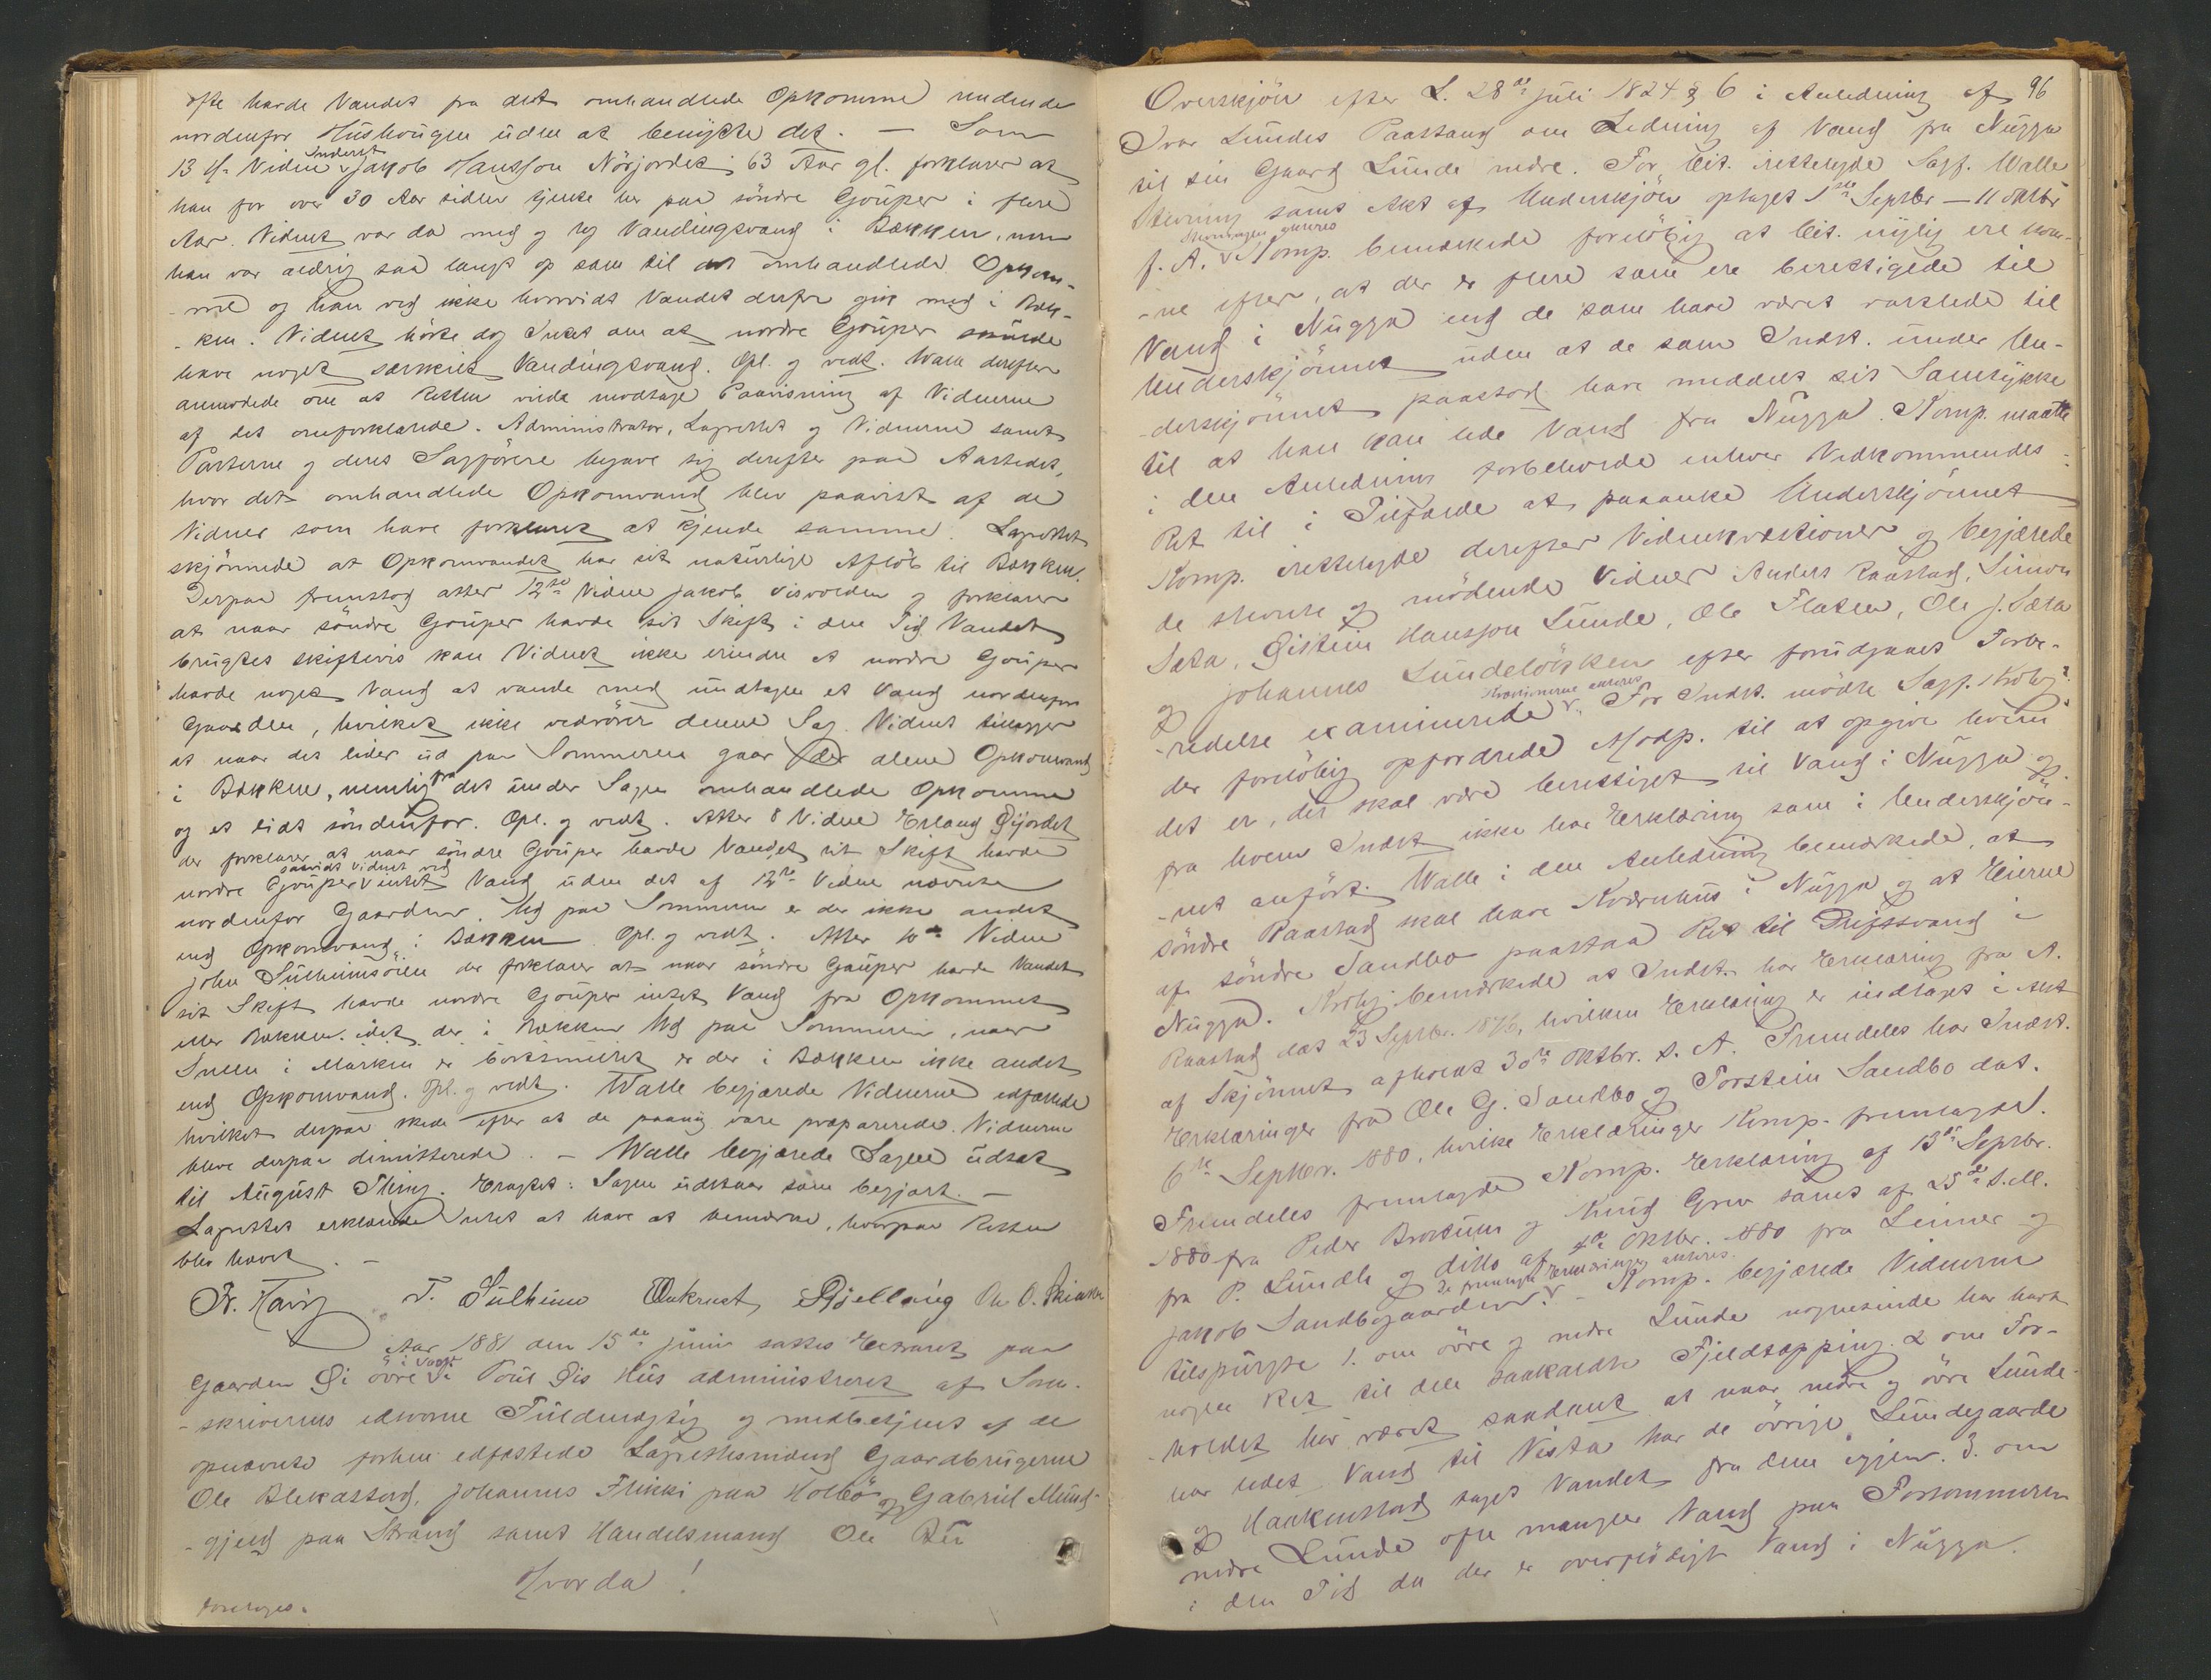 ofte havde Vandet fra det omhandlede Opkomme rindende
nordenfor Hushougen uden at benytte det. — Som
13 de Vidne Inderst Jakob Hansson Nörjordet 63 Aar gl. forklarer at
han for over 30 Aar siden tjente her paa söndre Gouper i flere
Aar. Vidnet var da med og tog Vandingsvand i Bækken, men
han var aldrig saa langt op som til det omhandlede Opkom-
-me og han ved ikke hvorvidt Vandet derfra gik med i Bæk-
-ken. Vidnet hörte dog Intet om at nordre Gouper skulde
have noget særskilt Vandingsvand. Opl. og vedt. Walle derefter
anmodede om at Retten vilde modtage Paavisning af Vidnerne
af det omforklarede. Administrator, Lagrettet og Vidnerne samt
Parterne og deres Sagförere begave sig derefter paa Aastedet,
hvor det omhandlede Opkomvand blev paavist af de
Vidner som have forklaret at kjende samme. Lagrettet
skjönnede at Opkomvandet har sit naturlige Aflöb til Bækken.
Derpaa fremstod atter 12te Vidne Jakob Visvolden og forklarer
at naar söndre Gouper havde sit Skift i den Tid Vandet
brugtes skiftevis kan Vidnet ikke erindre at nordre Gouper
havde noget Vand at vande med undtagen et Vand nordenfor
Gaarden, hvilket ikke vedrörer denne Sag. Vidnet tillægger
at naar det lider ud paa Sommeren gaar der alene Opkomvand
i Bækken, nemlig fra det under Sagen omhandlede Opkomme
og et lidt söndenfor. Opl. og vedt. Atter 8 Vidne Erland Öijordet
der forklarer at naar söndre Gouper havde Vandet sit Skift havde
nordre Gouper saavidt Vidnet ved intet Vand uden det af 12te Vidne nævnte
nordenfor Gaarden. Ud paa Sommeren er der ikke andet
end Opkomvand i Bækken. Opl. og vedt. Atter 10de Vidne
John Sulheimsöien der forklarer at naar söndre Gouper havde Vandet
sit Skift havde nordre Gouper intet Vand fra Opkommet
eller Bækken, idet der i Bækken Ud paa Sommeren, naar
Sneen i Marken er bortsmeltet er der i Bækken ikke andet
end Opkomvand. Opl. og vedt. Walle begjærede Vidnerne edfæstede
hvilket derpaa skede efter at de paany vare præparerede. Vidnerne
bleve derpaa dimitterede. — Walle begjærede Sagen udsat
til August Thing. Eragtet: Sagen udstaar som begjært. —
Lagrettet erklærede Intet at have at bemærke, hvorpaa Retten
blev hævet. —
Fr. Harig T. Sulheim Aukrust Ole O. Skinaker
Aar 1881 den 15de Juni sattes Extraret paa
Gaarden Öi övre i Vaage i Poul Öis Hus administreret af Sorn-
-skriverens edsvorne Fuldmægtig og medbetjent af de
opnævnte forhen edfæstede Lagrettesmænd Gaardbrugerne
Ole Blekastad, Johannes Flikki paa Holbö og Gabriel Mund-
-gjeld paa Strand samt Handelsmand Ole Bu
Hvorda!
foretoges.
Overskjön efter L. 28de Juli 1824 § 6 i Anledning af 96
Ivar Lundes Paastand om Ledning af Vand fra Nugga
til sin Gaard Lunde nedre. For Cit. irettelagde Sagf. Walle
Stevning samt Akt af Underskjön optaget 1ste Septbr — 11 Oktbr
f. A. Stevningen anføres Komp. bemærkede forelöbig at Cit. nylig ere kom-
-ne efter, at der er flere som ere berettigede til
Vand i Nugga end de som have været varslede til
Underskjönnet uden at de som Indst. under Un-
-derskjönnet paastod have meddelt sit Samtykke
til at han kan lede Vand fra Nugga. Komp. maatte
i den Anledning forbeholde enhver Vedkommendes
Ret til i Tilfælde at paaanke Underskjönnet
Komp. irettelagde derefter Vidnekvæstioner og begjærede
de stevnte og mödende Vidner Anders Raastad, Simon
Sæta, Öistein Hansson Lunde, Ole Flaten, Ole J. Sæta
og Johannes Lundelökken efter forudgaaet Forbe-
-redelse examinerede Kvæstionerne anføres. For Indst. mödte Sagf. Kroby
der forelöbig opfordrede Modp. til at opgive hvem
det er, der skal være berettiget til Vand i Nugga og
fra hvem Indst ikke har Erklæring som i Underskjön-
-net anfört. Walle i den Anledning bemærkede, at
söndre Raastad skal have Kværnhus i Nugga og at Eierne
af söndre Sandbo paastaa Ret til Driftsvand i
Nugga. Kroby bemærkede at Indst. har Erklæring fra A.
Raastad dat 23 Septbr. 1876, hvilken Erklæring er indtaget i Akt
af Skjönnet afholdt 30te Oktbr. s. A. Fremdeles har Indst.
Erklæringer fra Ole G. Sandbo og Torstein Sandbo dat.
6te Septbr. 1880, hvilke Erklæringer Komp. fremlagde.
Fremdeles fremlagde Komp. Erklæring af 13de Septbr.
1880 fra Peder Brostuen og Knud Grev samt af 25de s. M.
fra P. Lunde og ditto af 4de Oktbr. 1880 fra Leiner og
Jakob Sandbogaarden. De fremlagte Erklæringer anføres. — Komp. begjærede Vidnerne
tilspurgte 1. om övre og nedre Lunde nogensinde har havt
nogen Ret til den saakaldte Fjeldtapping. 2 om For-
-holdet har været saadant at naar nedre og övre Lunde
har ledet Vand til Vista har de övrige Lundegaarde
og Haakenstad taget Vandet fra dem igjen. 3. om
nedre Lunde ofte mangler Vand paa Forsommeren
i den Tid da der er overflödigt Vand i Nugga.